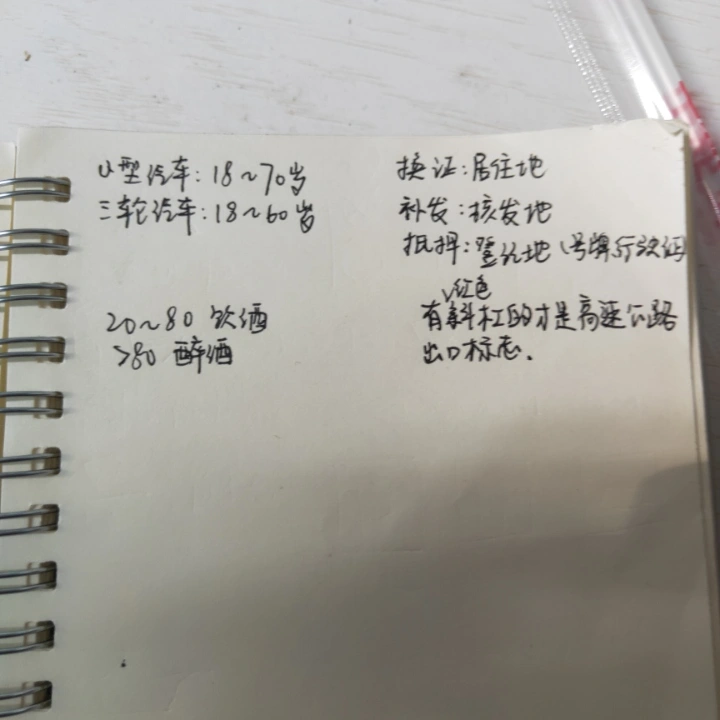 小型汽车：18～70岁
三轮汽车：18～60岁
20～80 饮酒
>80 醉酒
换证：居住地
补发：核发地
抵押：登记地（号牌行驶证）
√红色
有斜杠的才是高速公路
出口标志.